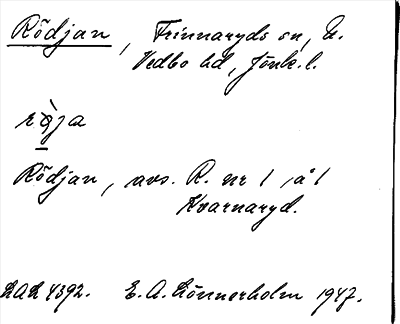 Rödjan, Frinnaryds sn, N.
Vedbo hd, Jönk. l.
Rödjan, avs. R. nr 1 å 1
Kvarnaryd.
LAL 4392. E. A. Lönnerholm 1947.